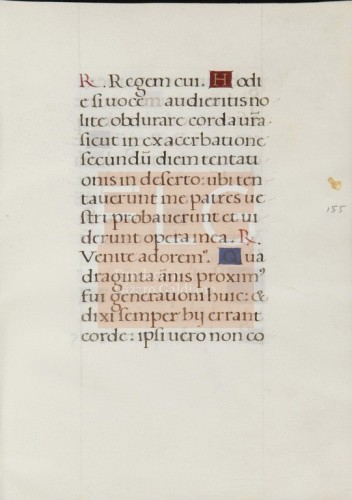 R. Regem cui. Hodi
e si uocem audieritis no
lite obdurare corda ur̃a
sicut in exacerbatione
secundũ diem tentati
onis in deserto: ubi ten
tauerunt me patres ue
stri probauerunt et ui
derunt opera mea. R.
Venite adorem⁹. Qua
draginta ãnis proxim⁹
fui generationi huic: &
dixi semper hy errant
corde: ipsi uero non co
155
FLG